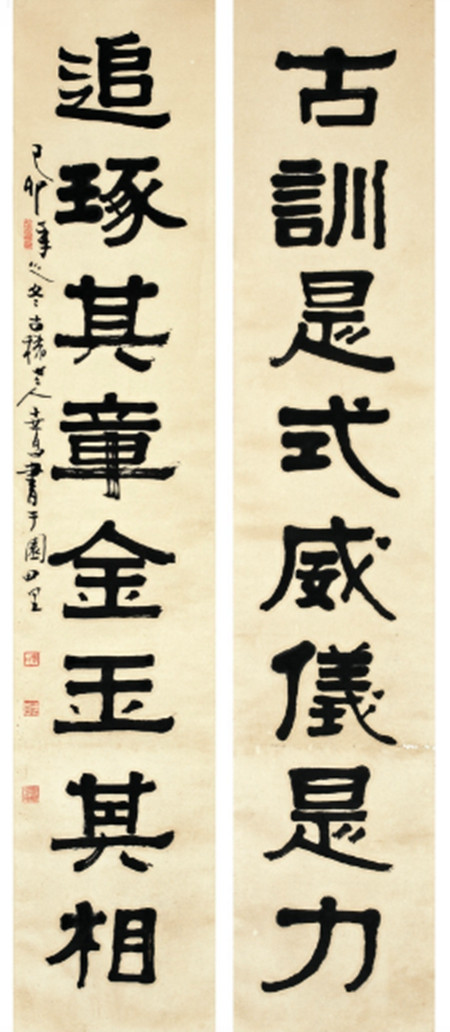 古訓是式威儀是力
追琢其章金玉其相
己卯年之冬古稀老人書于園田里